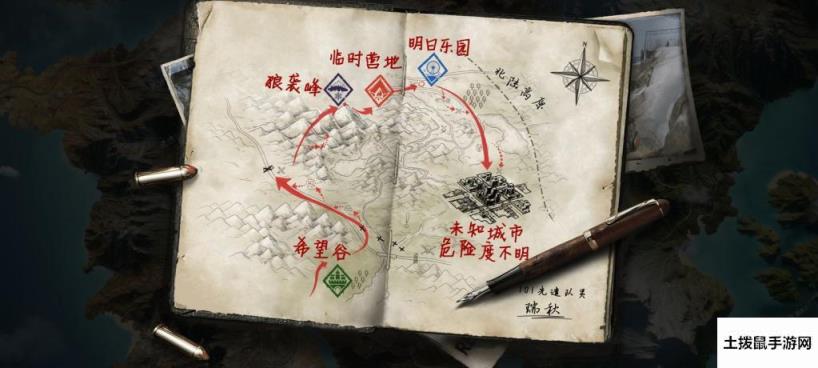 明日乐园
临时营地
狼袭峰
北陆高原
N
希望谷
未知城市
危险度不明
101先遣队员
瑞秋
土拨鼠手游网